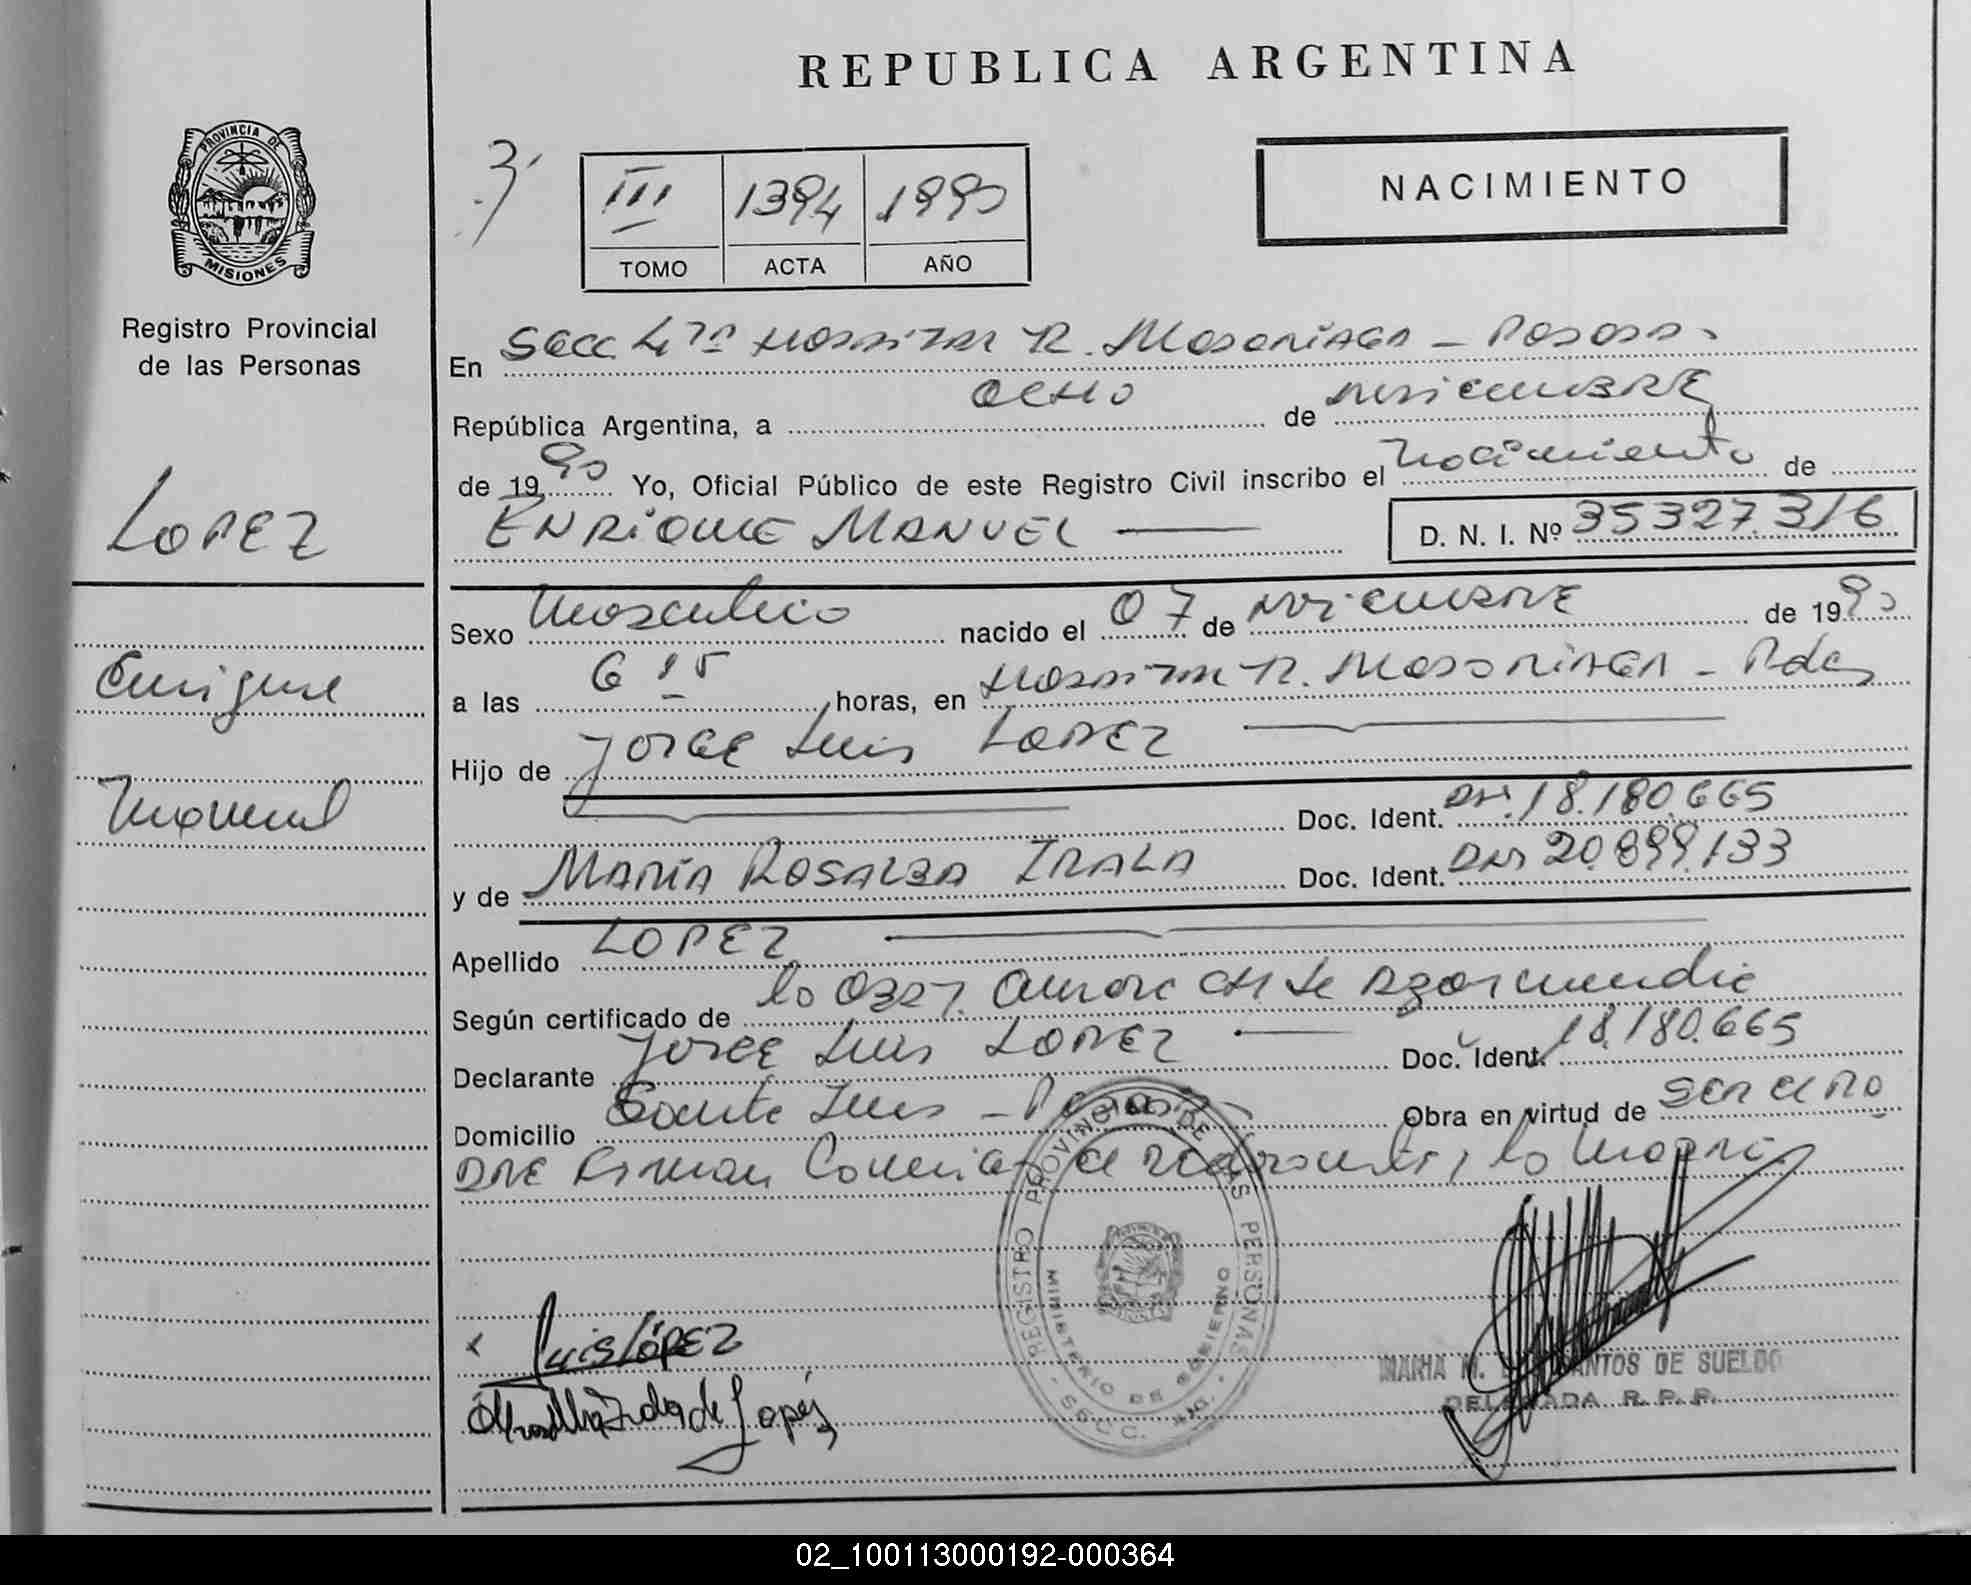 REPUBLICA ARGENTINA
PROVINCIA DE
MISIONES
Registro Provincial
de las Personas
III 1394 1990
TOMO ACTA AÑO
NACIMIENTO
En Secc 4ta Hospital R. Madariaga - Posadas
República Argentina, a ocho de diciembre
de 1990 Yo, Oficial Público de este Registro Civil inscribo el nacimiento de
ENRIQUE MANUEL D. N. I. Nº 35327.316
LOPEZ
Enrique
Manuel
Sexo Masculino nacido el 07 de diciembre de 1990
a las 6 15 horas, en Hospital R. Madariaga - Pdas
Hijo de Jorge Luis LOPEZ
Doc. Ident. DNI. 18.180.665
y de MARÍA ROSALBA IRALA Doc. Ident. DNI 20.899.133
Apellido LOPEZ
Según certificado de la Obst. Aurora de Azarmendia
Declarante Jorge Luis LOPEZ Doc. Ident. 18.180.665
Domicilio Santa Ines - Posadas Obra en virtud de ser el pa
dre Firman la madre
REGISTRO PROVINCIAL DE LAS PERSONAS
MINISTERIO DE GOBIERNO
SECC.
Luis LÓPEZ
de Lopez
MARIA M. SANTOS DE SUELDO
DELEGADA R. P. P.
02_100113000192-000364